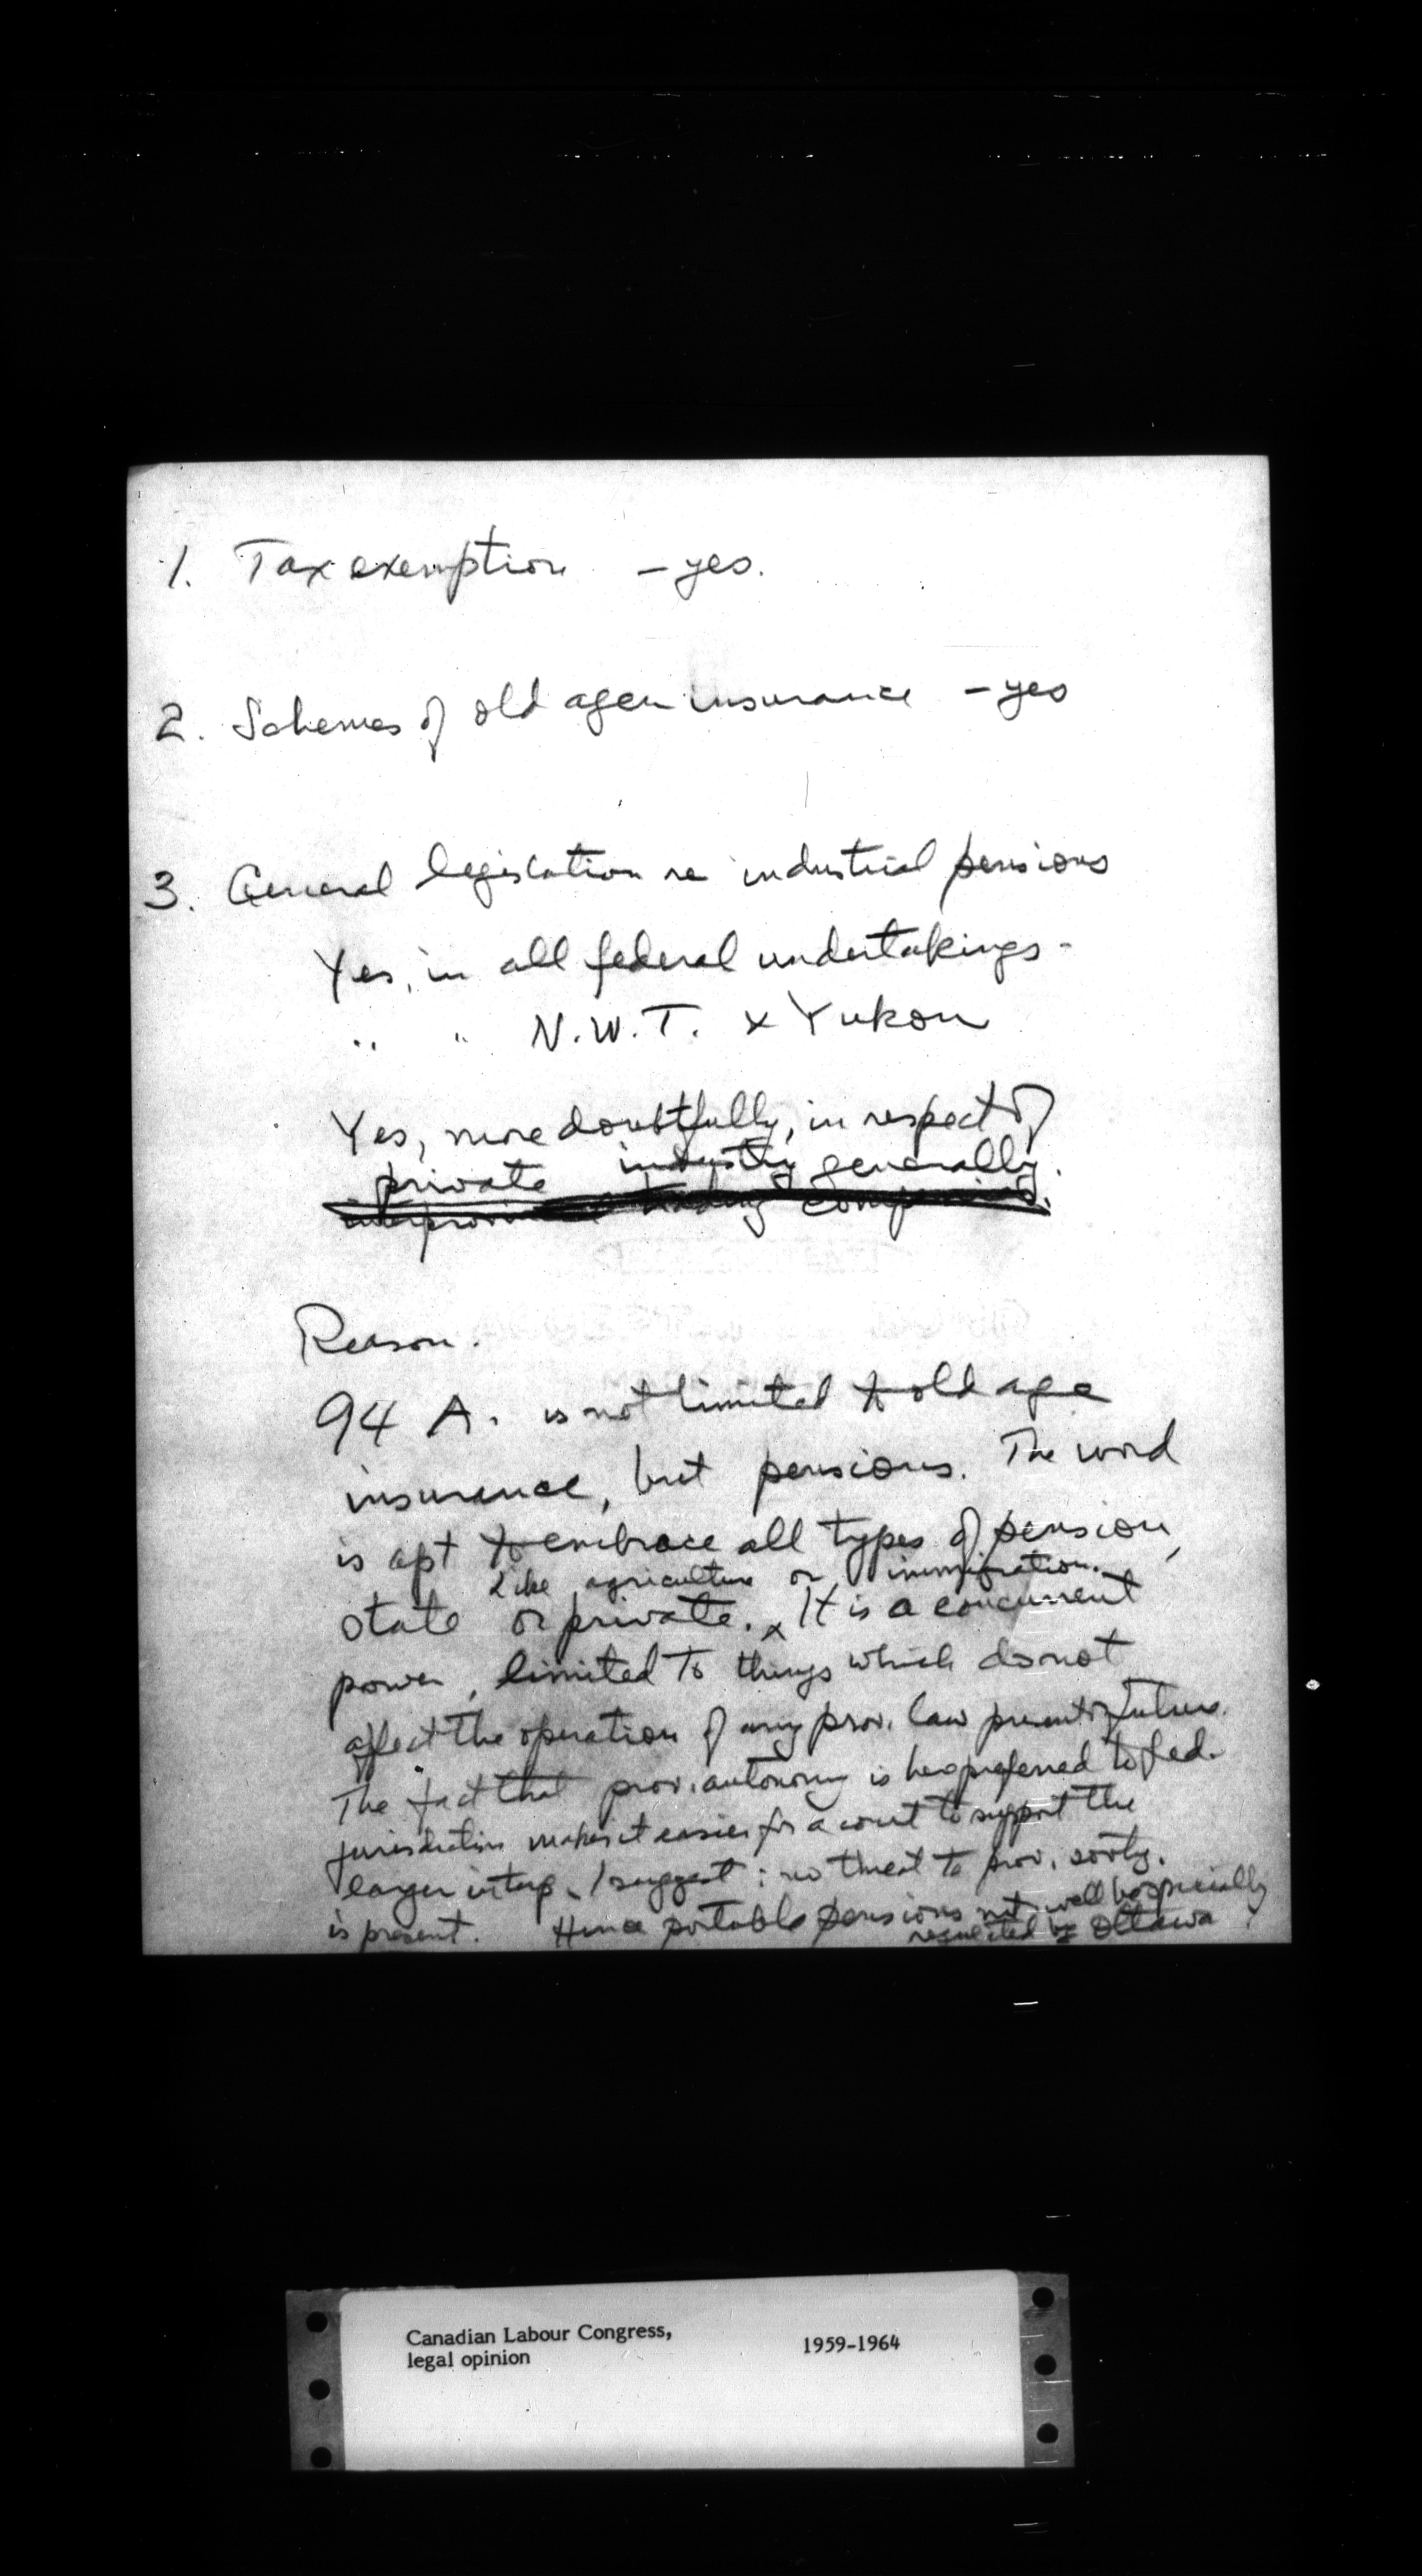 1. Tax exemption - yes.
2. Schemes of old age insurance - yes
3. General legislation re industrial pensions
Yes, in all federal undertakings -
" " N.W.T. & Yukon
Yes, more doubtfully, in respect of
private industry generally.
trading
Reason.
94 A. is not limited to old age
insurance, but pensions. The word
is apt to embrace all types of pension,
Like agriculture or immigration.
state or private. x It is a concurrent
power, limited to things which do not
affect the operation of any prov. law present or future.
The fact that prov. autonomy is here preferred to fed.
jurisdiction makes it easier for a court to support the
larger interp. I suggest: no threat to prov. sovty.
is present. Hence portable pensions well be specially
regulated by Ottawa
Canadian Labour Congress, 1959-1964
legal opinion